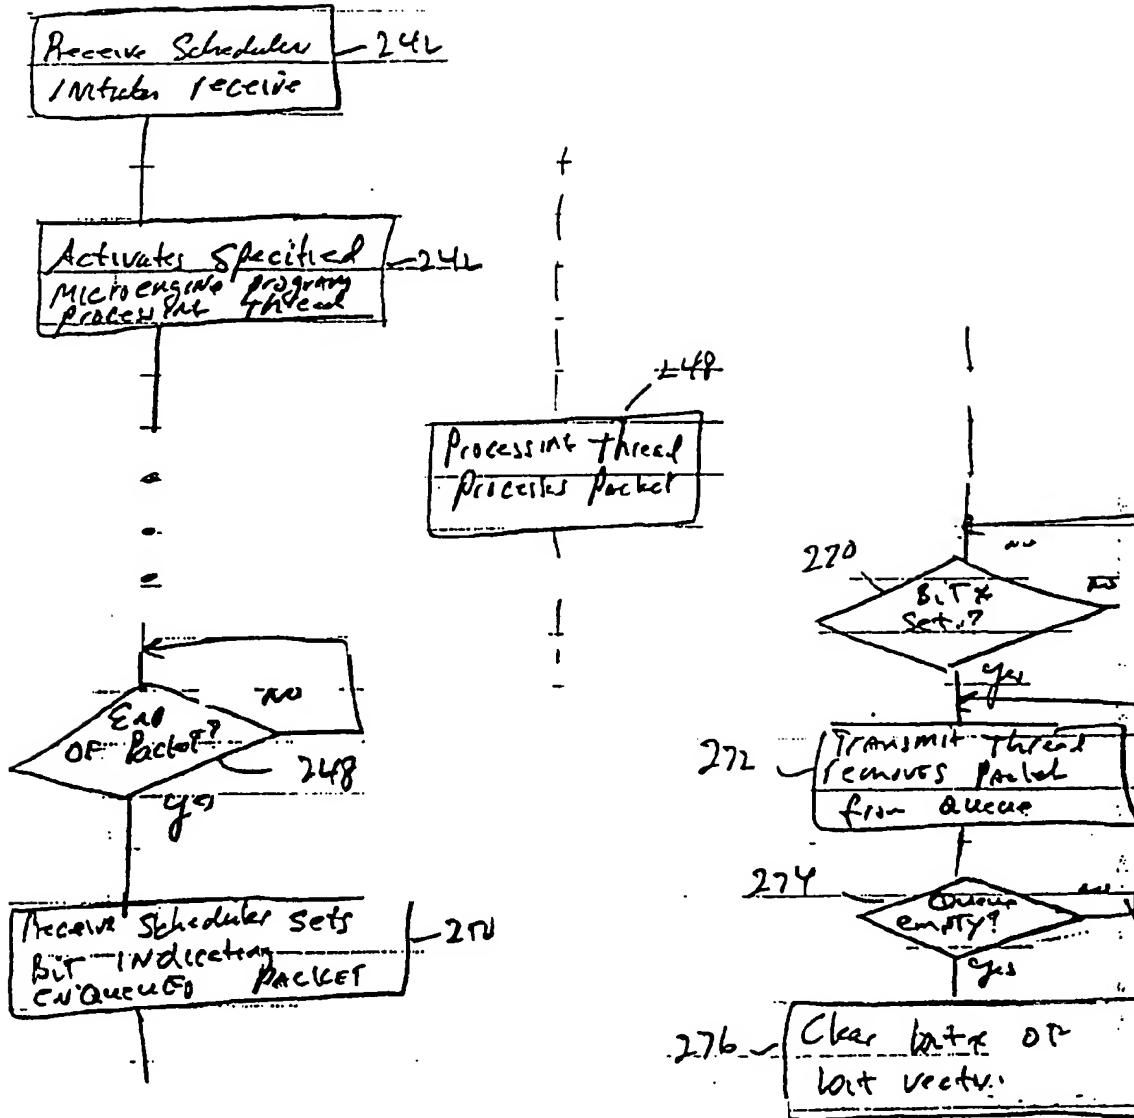 Receive Scheduler
initiates receive
242
Activates Specified
Microengine program
processing thread
242
248
Processing thread
Processes Packet
End
OF Packet?
NO
248
yes
Receive Scheduler Sets
BIT INdicating
ENQUEUED PACKET
250
270
BIT x
Set?
NO
NO
Yes
272
Transmit thread
removes Packet
from Queue
274
Queue
empty?
NO
Yes
276
Clear bit x OF
bit vector